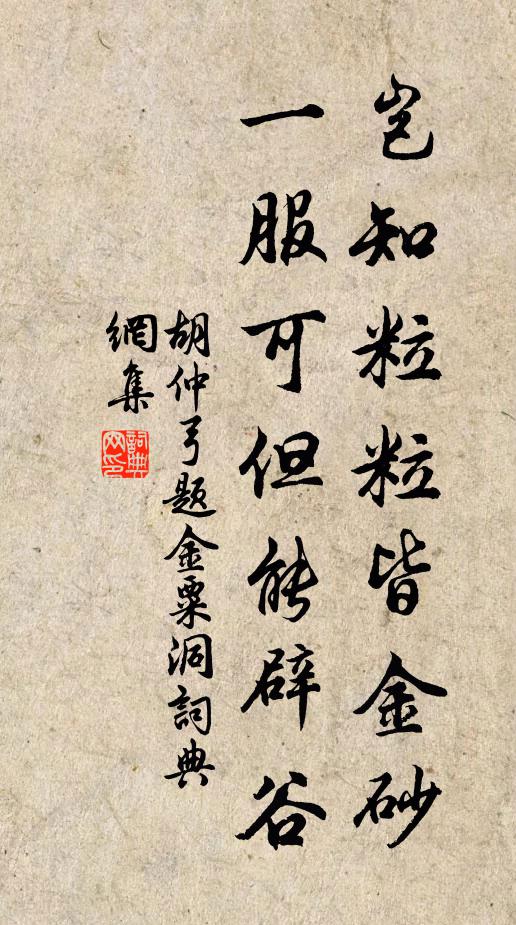 岂知粒粒皆金砂
一服可但能辟谷
胡仲弓題金粟洞詞典
網集
詞典
网印